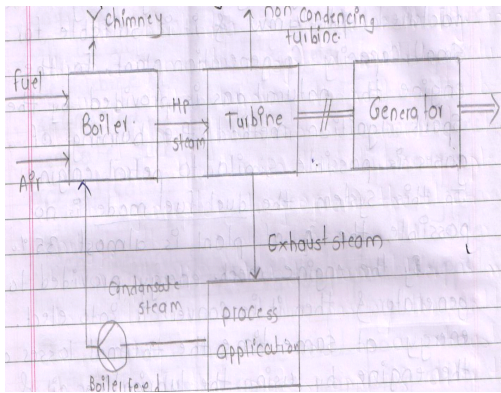 chimney
non condencing
turbine.
fuel
Boiler.
HP
steam
Turbine
Generator
Air
Exhaust steam
Condansate
steam
process
application
Boiler feed